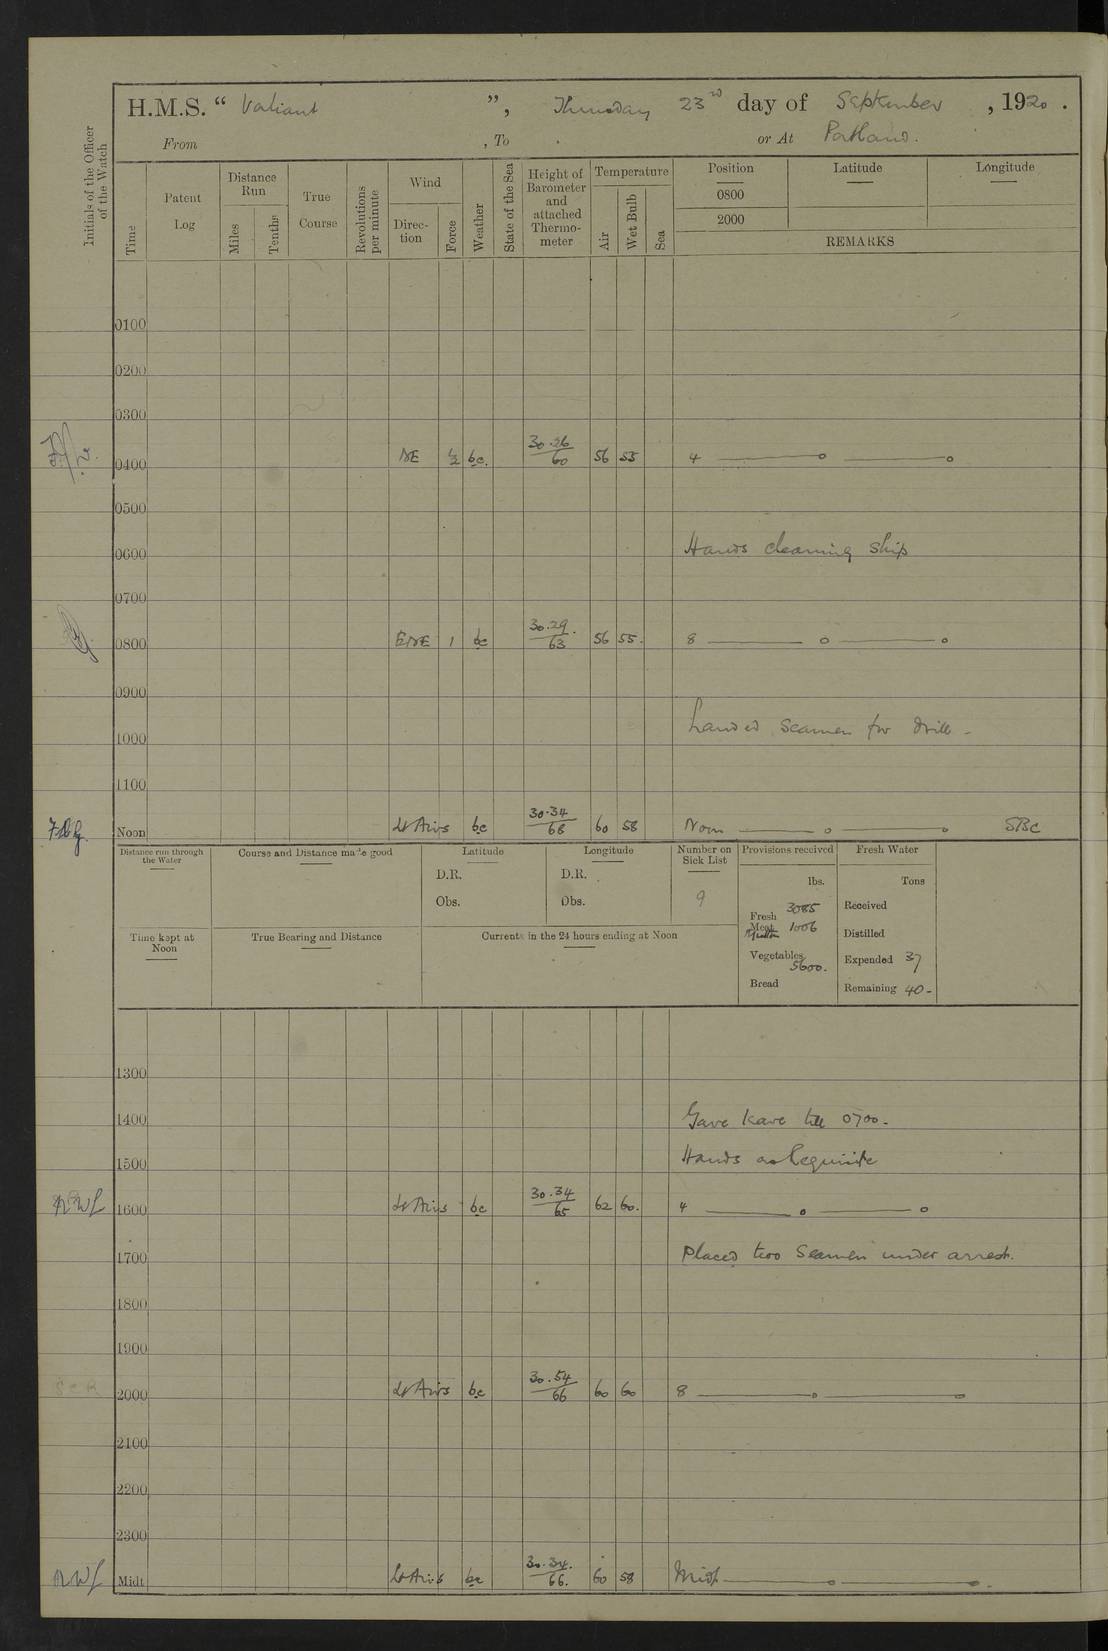 H.M.S. “ Valiant ”, Thursday 23rd day of September , 1920 .
From , To . or At Portland .
Initials of the Officer of the Watch
Time
Patent Log
Distance Run
Miles
Tenths
True Course
Revolutions per minute
Wind
Direc-tion
Force
Weather
State of the Sea
Height of Barometer and attached Thermo-meter
Temperature
Air
Wet Bulb
Sea
Position
Latitude
Longitude
0800
2000
REMARKS
0100
0200
0300
0400 NE ½ bc. 30.26/60 56 55 4 —— o —— o
0500
0600 Hands cleaning ship
0700
0800 ENE 1 bc 30.29/63 56 55. 8 —— o —— o
0900
1000 Landed seamen for drill -
1100
Noon Lt Airs bc 30.34/68 60 58 Noon —— o —— o SBC
Distance run through the Water
Course and Distance made good
Latitude
D.R.
Obs.
Longitude
D.R.
Obs.
Number on Sick List
9
Provisions received
lbs.
Fresh Meat 3085
Mutton 1006
Vegetables 5600.
Bread
Fresh Water
Tons
Received
Distilled
Expended 37
Remaining 40 -
Time kept at Noon
True Bearing and Distance
Currents in the 24 hours ending at Noon
1300
1400 Gave leave till 0700 -
1500 Hands as requisite
RWL 1600 Lt Airs bc 30.34/65 62 60. 4 —— o —— o
1700 Placed two Seamen under arrest.
1800
1900
2000 Lt Airs bc 30.54/66 60 60 8 —— o —— o
2100
2200
2300
RWL Midt Lt Airs bc 30.34./66. 60 58 Midt —— o —— o